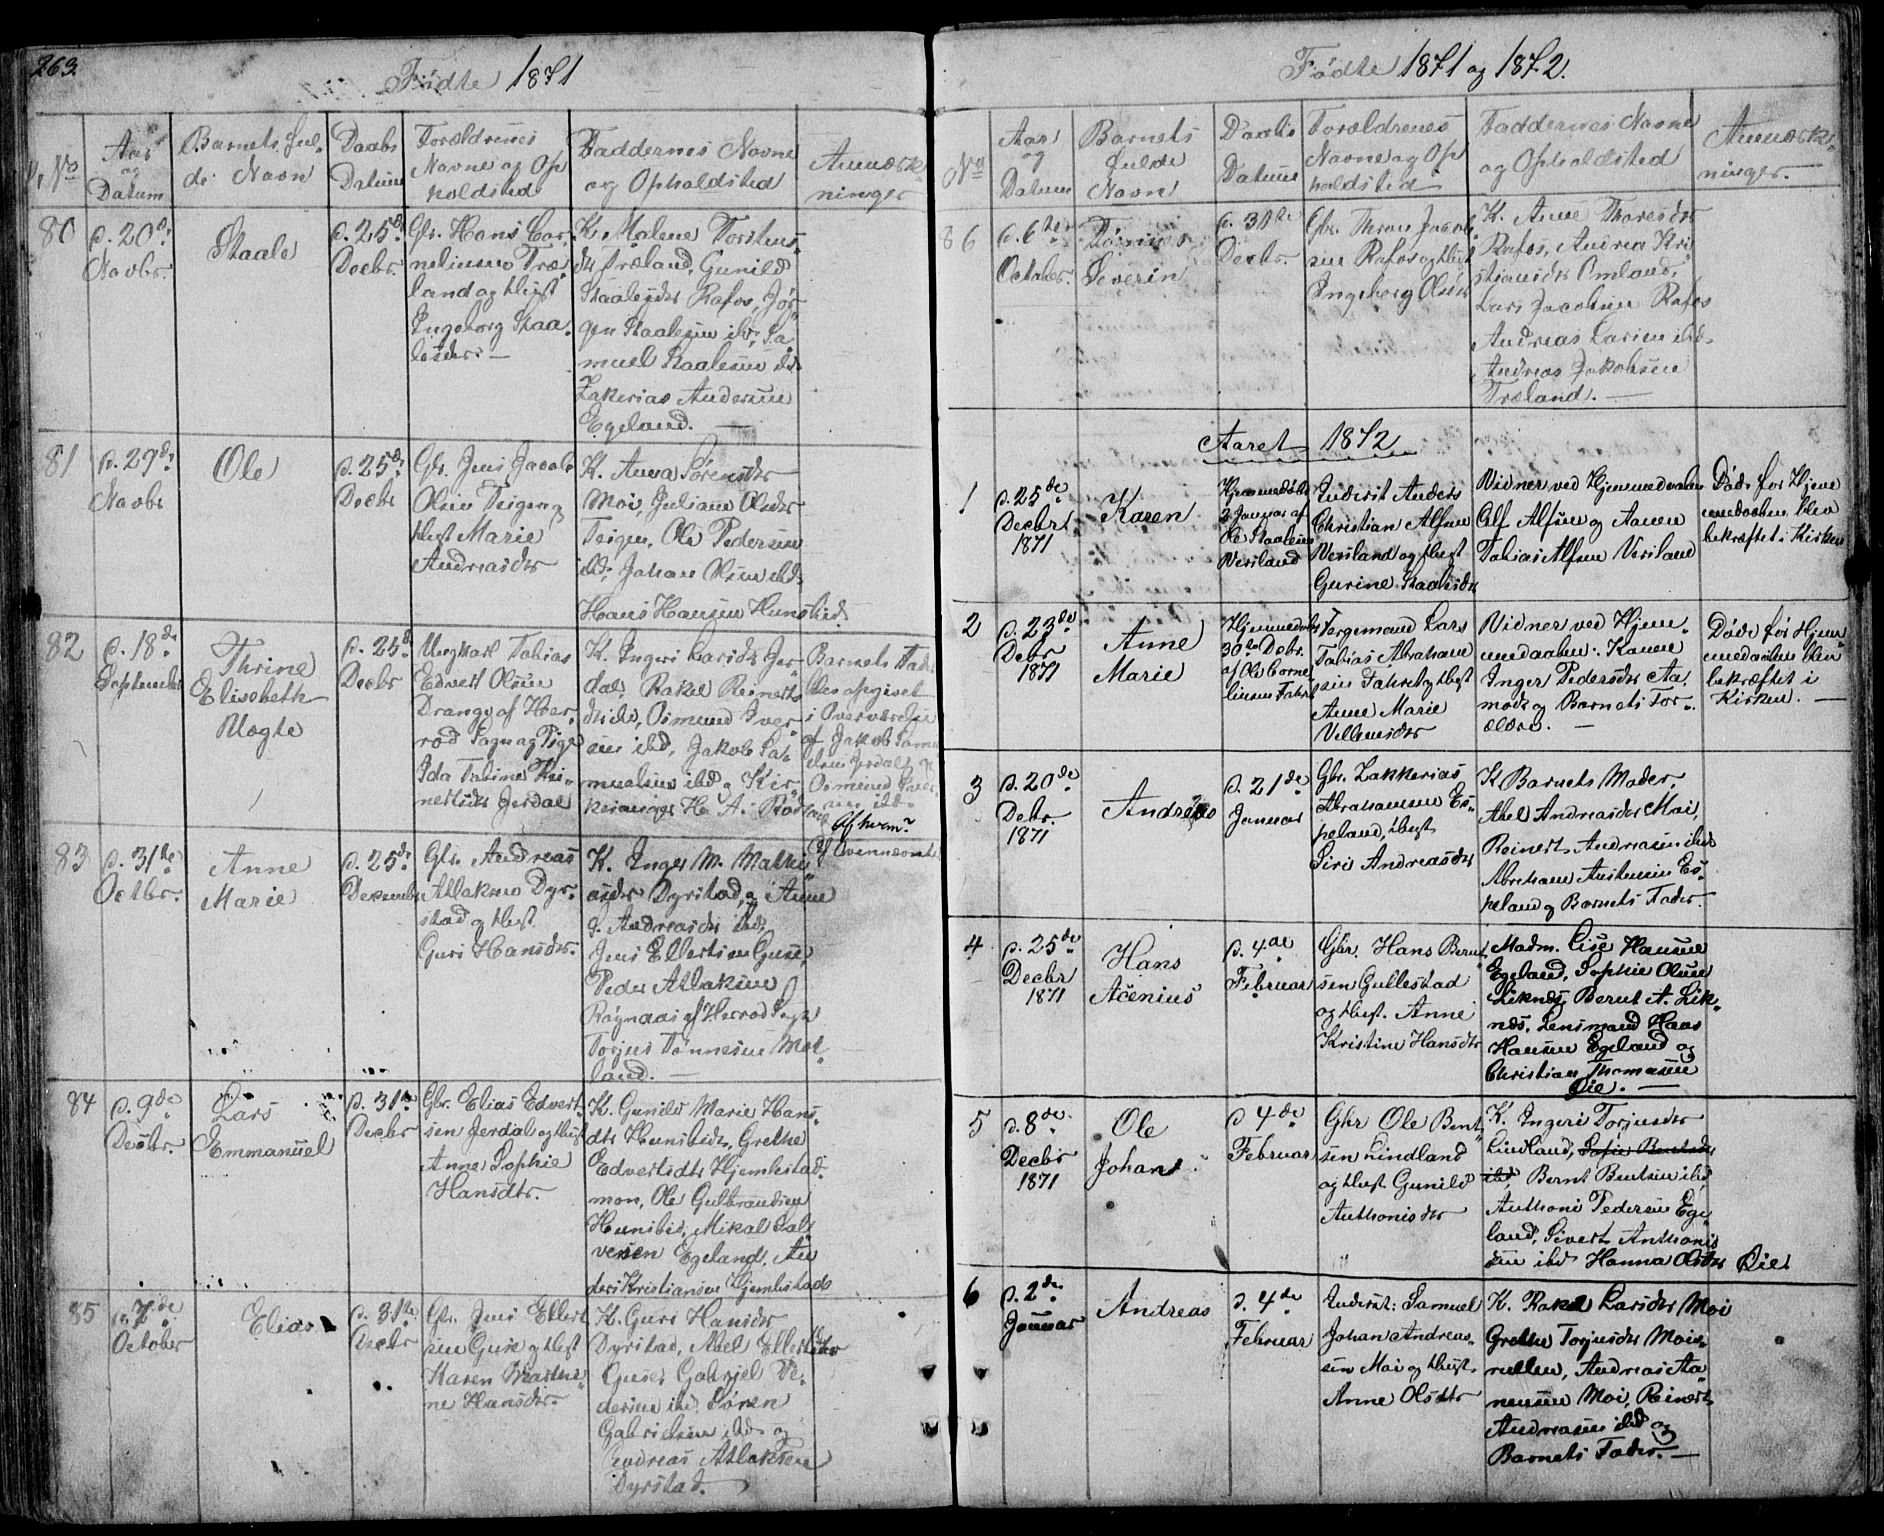 263.
Fødte 1871
No
Aar
og
Datum
Barnets ful-
de Navn
Daabs
Datum
Forældrenes
Navne og Op
holdsted
Faddernes Navne
og Opholdsted
Anmærk-
ninger
80
d. 20de
Novbr.
Staale
d. 25de
Decbr.
Gbr. Hans Cor-
neliusen Træ-
land og Hust
Ingeborg Staa-
lesdtr. —
K. Malene Torstens-
dtr Træland, Gunild
Staalesdtr Rafos, Jør-
gen Staalesen ibd, Sa-
muel Staalesen ibd.
Zakerias Andersen
Egeland. —
81
d. 29de
Novbr
Ole
d. 25de
Decbr
Gbr. Jens Jacob
Olsen Teigen og
Hust Marie
Andreasdtr
K. Anna Sørensdtr
Moi, Juliane Olsdtr
Teigen, Ole Pedersen
ibd, Johan Olsen ibd.
Hans Hansen Hunsbed.
82
d. 18de
September
Thrine
Elisebeth
Magte
d. 25de
Decbr
Ungkarl Tobias
Edvert Olsen
Drange af Her-
rød Sogn og Pige
Ida Tabine Rei-
nertsdtr Jerdal
K. Ingeri Larsdtr Jer-
dal, Rakel Reinerts
dtr ibd, Osmund Iver-
sen ibd, Jakob Sa-
muelsen ibd og Kir-
kesanger H. A. Rødland
Barnets Fader
blev opgivet
i Overværelse
af Jakob Samu-
elsen Jerdal og
Osmund Iver-
sen ibd.
83
d. 31te
Octbr.
Anne
Marie
d. 25de
December
Gbr. Andreas
Atlaksen Dyr-
stad og Hust
Guri Hansdtr.
K. Inger M. Mathi-
asdtr Dyrstad, og Anne
S. Andreasdtr ibd,
Jens Ellertsen Guse,
Peder Atlaksen
Røynaas af Herrød Sogn
Torjus Tønnesen Mol-
land. —
84
d. 9de
Decbr.
Lars
Emmanuel
d. 31te
Decbr
Gbr. Elias Edvert-
sen Jerdal og Hust
Anne Sophie
Hansdtr.
K. Gunild Marie Hans-
dtr Hunsbedt, Grethe
Edvertsdtr Hjemhstad-
mon, Ole Gulbrandsen
Hunsbed, Mikal Sal-
vesen Egeland, An
ders Kristiansen Hjemhstads
85
October
Elias
d. 31te
Decbr
Gbr. Jens Ellert
sen Guse og Hust
Karen Marthe-
ne Hansdtr.
K. Guri Hansdtr
Dyrstad, Abel Ellertsdtr
Guse, Gabriel Pe-
dersen ibd. Søren
Gabrielsen ibd og
Andreas Atlaksen
Dyrstad.
Fødte 1871 og 1872.
No
Aar
og
Datum
Barnets
fulde
Navn
Daabs
Datum
Forældrenes
Navne og Op
holdsted
Faddernes Navne
og Opholdsted
Anmærk-
ninger.
86
d. 6te
October.
Tønnes
Severin
d. 31te
Decbr.
Gbr. Thron Jacob-
sen Rafos og Hust
Ingeborg Olsdtr
K. Anne Thoresdtr
Rafos, Andrea Kri
stiansdtr Omland,
Lars Jacobsen Rafos
Andreas Larsen ibd.
Andreas Jakobsen
Træland. —
Aaret 1872
1
d. 25de
Decbr
1871
Karen
Hjemmedøbt
2 Januar af
Ole Staalesen
Versland
Inderst Anders
Christian Alfsen
Versland og Hust
Gurine Staalesdtr
Vidner ved Hjemmedaaben
Alf Alfsen og Aanen
Tobias Alfsen Versland
Døde før Hjem
medaaben blev
bekræftet i Kirken
2
d. 23de
Debr
1871
Anne
Marie
Hjemmedøbt
30te Debr.
af Ole Corne-
liusen Fahret
Færgemand Lars
Tobias Abraham
sen Fahret og Hust
Anne Marie
Villumsdtr
Vidner ved Hjem-
medaaben: Kone
Inger Pedersdtr Aa-
modt og Barnets For-
ældre. —
Døde før Hjem-
medaaben blev
bekræftet i
Kirken. —
3
d. 20de
Debr.
1871
Andreas
d. 21de
Januar
Gbr. Zakkerias
Abrahamsen Es-
peland, Hust
Siri Andreasdtr
K. Barnets Moder,
Abel Andreasdtr Moi,
Reinert Andreasen ibid
Abraham Austensen Es-
peland og Barnets Fader.
4
d. 25de
Decbr
1871
Hans
Acenius
d. 4de
Februar
Gbr. Hans Bernt-
sen Gullestad
og Hust. Anne
Kristine Hansdtr
Madm. Lise Hansen
Egeland, Sophie Olsen
Liknes, Bernt A. Lik-
nes, Lensmand Hans
Hansen Egeland og
Christian Thomasen
Øie. —
5
d. 8de
Decbr
1871
Ole
Johan
d 4de
Februar
Gbr Ole Bent-
sen Lindland
og Hust Gunild
Anthonisdtr
K. Ingeri Torjusdtr
Lindland, Sofie Bentsdtr
ibd, Bernt Bentsen ibd,
Anthoni Pedersen Ege-
land, Sivert Anthonis
sen ibd Hanna Olsdtr Øie
6
d. 2de
Januar
Andreas
d. 4de
Februar
Inderst: Samuel
Johan Andreas-
sen Moi og Hust.
Anne Olsdtr
K. Rakel Larsdtr Moi
Grethe Torjusdtr Moi-
Andreas Aa-
nensen Moi, Reinert
Andreasen ibd og
Barnets Fader. —